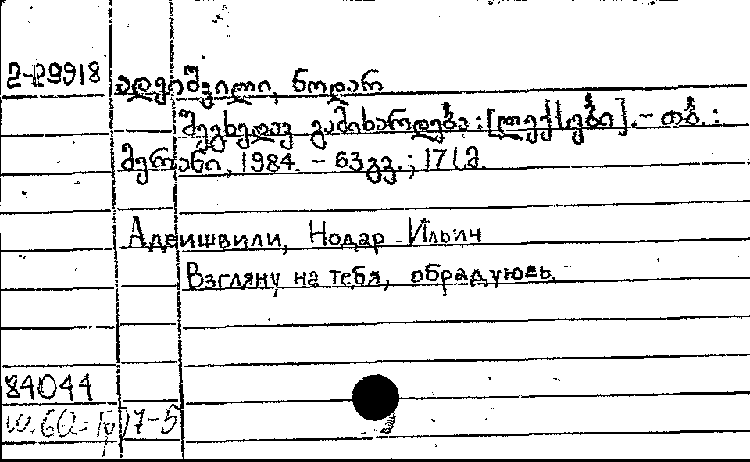 2-29918 ადეიშვილი, ნოდარ
შევხედავ გამიხარდება : [ლექსები]. - თბ. :
მერანი, 1984. - 63 გვ. ; 17 სმ.
Адеишвили, Нодар Ильич
Взгляну на тебя, обрадуюсь.
84044
17-5